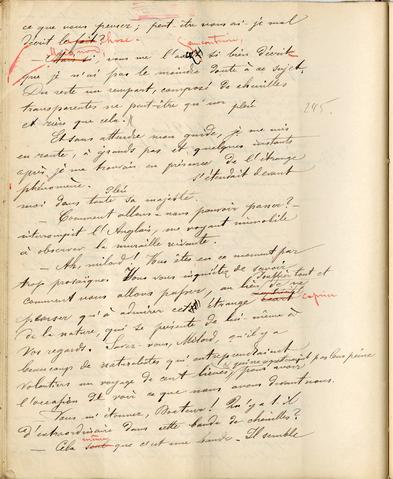 ce que vous pensez; peut être vous ai-je mal
décrit la chose?
— si, vous me l'avez si bien décrite
que je n'ai pas le moindre doute à ce sujet.
Du reste un rempart, composé de chenilles
transparentes ne peut-être qu'un plié
et rien que cela!
245.
Et sans attendre mon guide, je me mis
en route, à grands pas et quelques instants
après je me trouvais en présence de l'étrange
phénomène. Plié s'étendait devant
moi dans toute sa majesté.
— Comment allons-nous pouvoir passer? —
interrompit l'Anglais, me voyant immobile
à observer la muraille vivante.
— Ah, milord! Vous êtes en ce moment par
trop prosaïque. Vous vous inquiétez de savoir
comment nous allons passer, au lieu de
penser qu'à admirer cet étrange caprice
de la nature, qui se présente de lui même à
vos regards. Savez-vous, Milord, qu'il y a
beaucoup de naturalistes qui entreprendraient
volontiers un voyage de cent lieues, pour avoir
l'occasion de voir ce que nous avons devant nous.
— Vous m'étonnez, Docteur! Qu'y a-t-il
d'extraordinaire dans cette bande de chenilles?
— Cela même que c'est une bande. Il semble